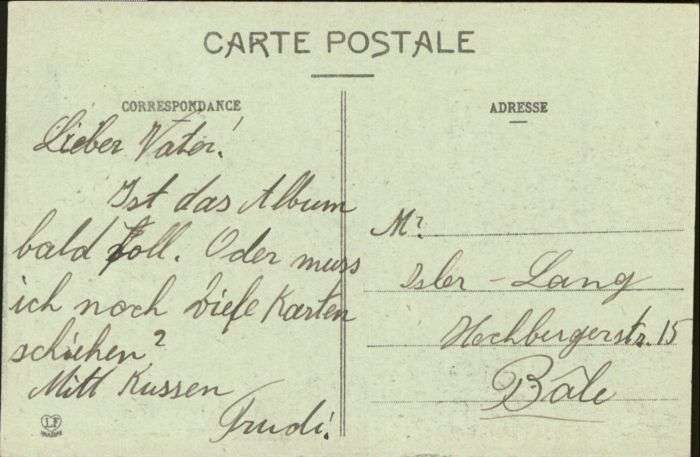 CARTE POSTALE
CORRESPONDANCE
ADRESSE
Lieber Vater!
Ist das Album
bald voll. Oder muss
ich noch viele Karten
schiehen?
Mitt Kussen
Trudi.
Mr
Isler - Lang
Hochbergerstr. 15
Bâle